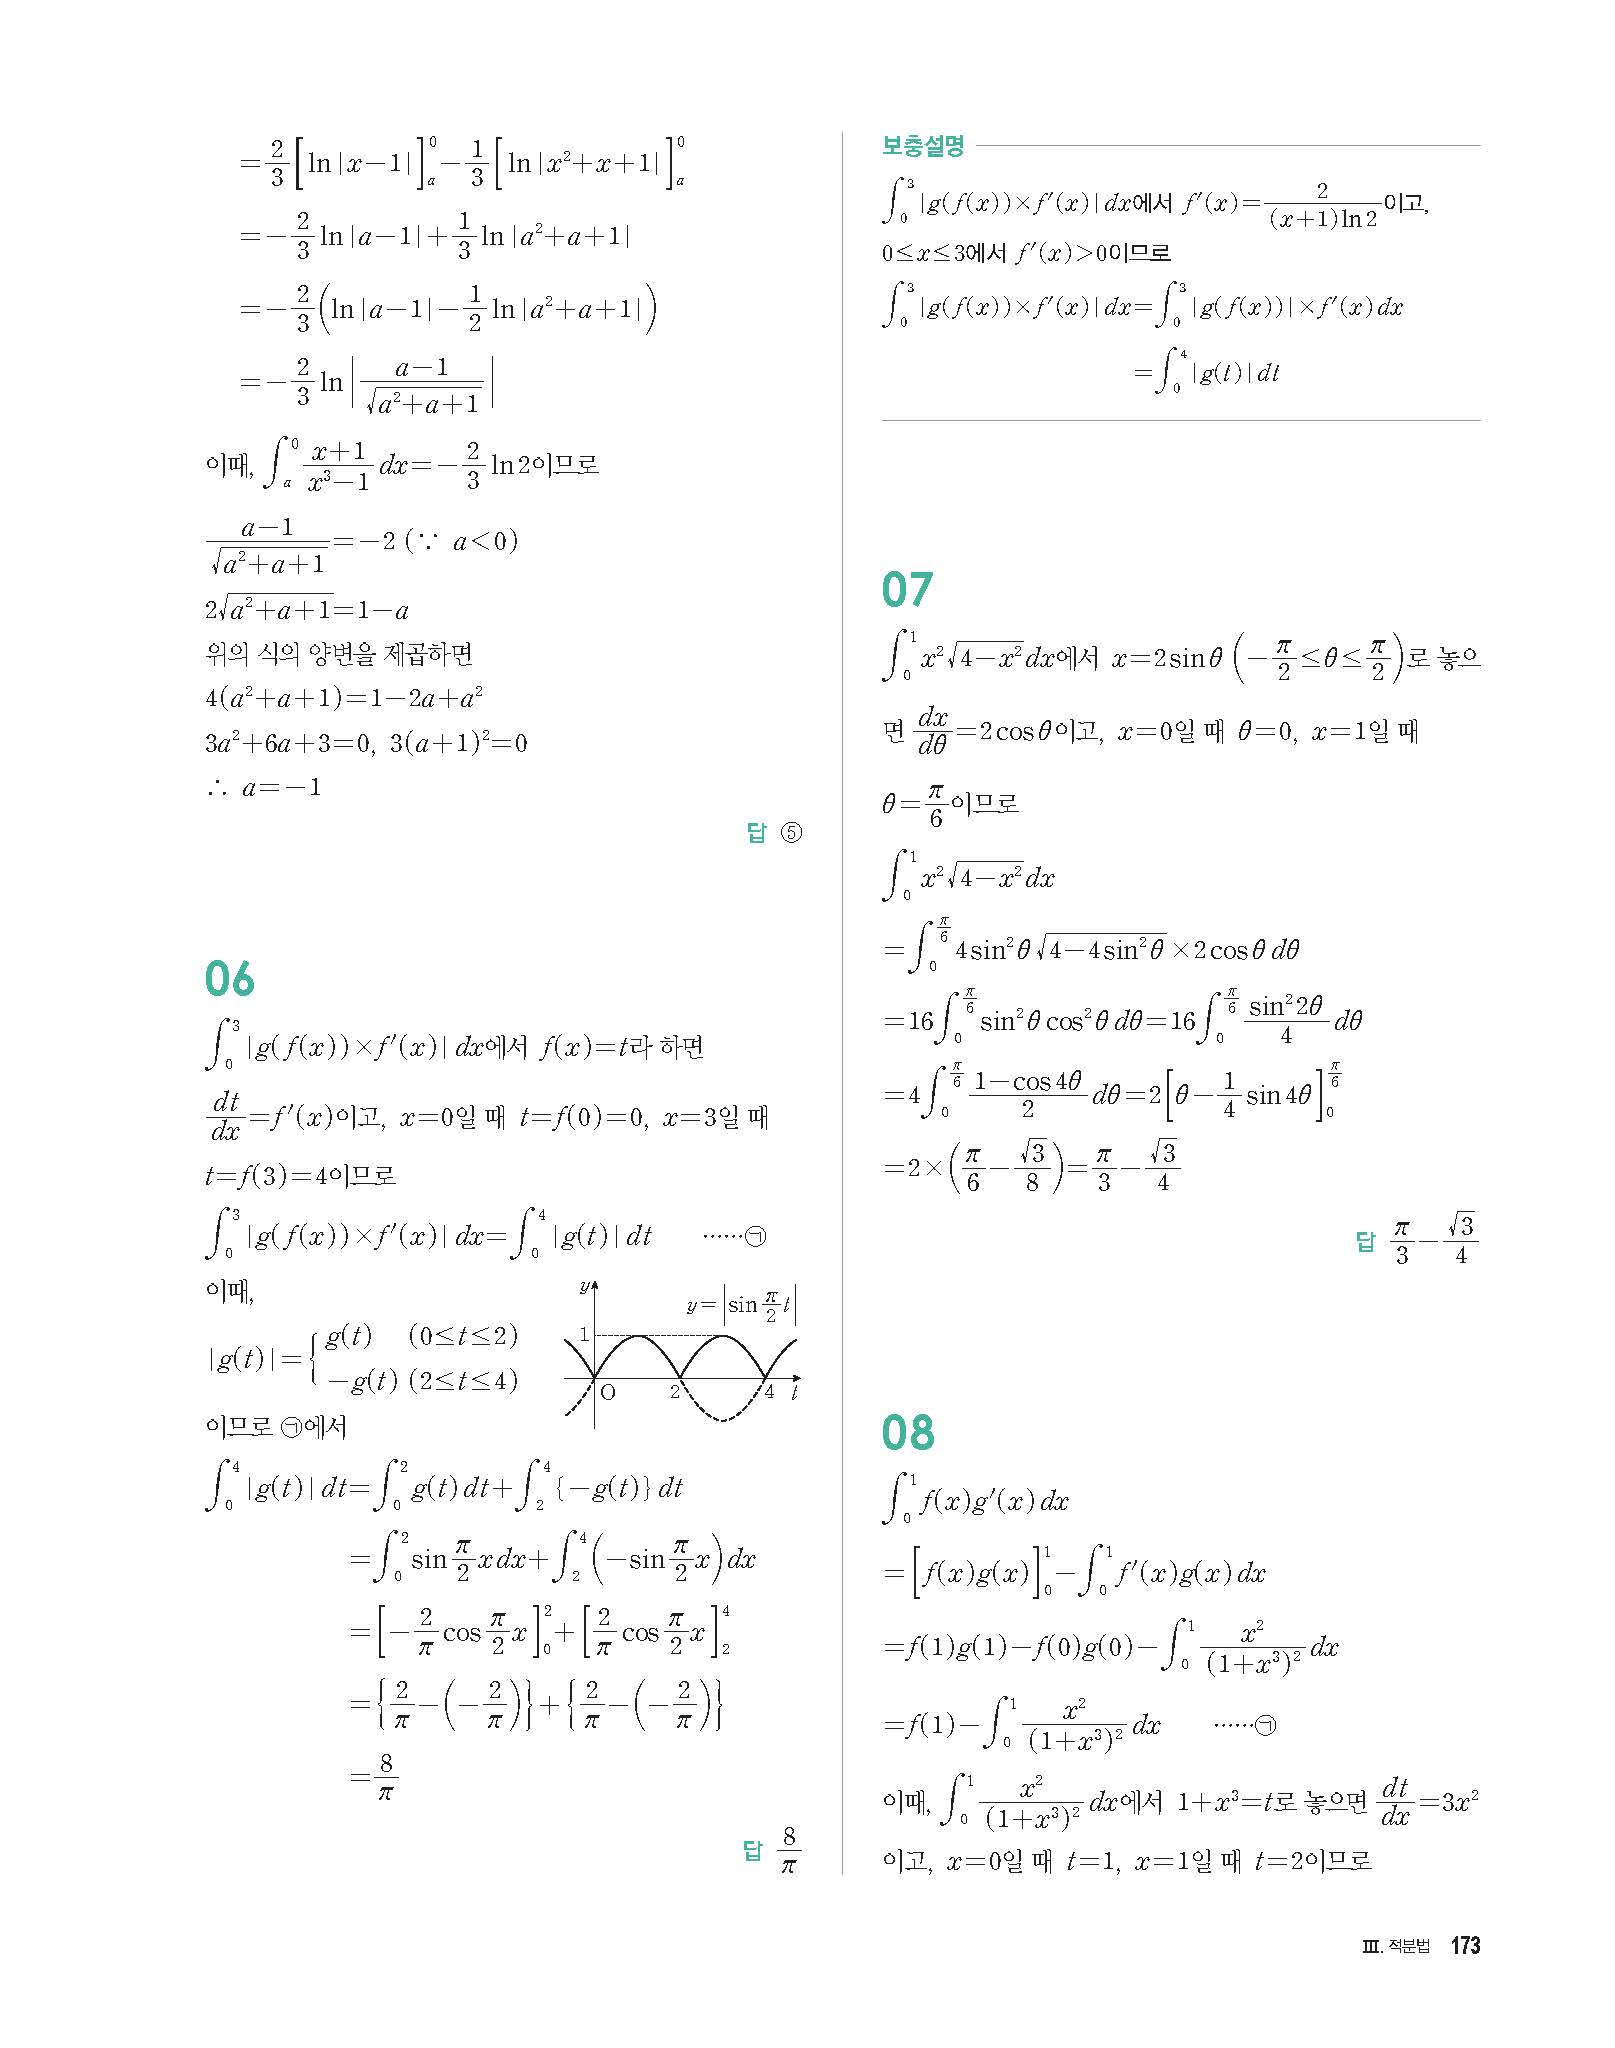 =2/3[ln|x-1|]_a^0-1/3[ln|x²+x+1|]_a^0
=-2/3 ln|a-1|+1/3 ln|a²+a+1|
=-2/3(ln|a-1|-1/2 ln|a²+a+1|)
=-2/3 ln|(a-1)/√(a²+a+1)|
이때, ∫_a^0 (x+1)/(x³-1) dx=-2/3 ln2이므로
(a-1)/√(a²+a+1)=-2 (∵ a<0)
2√(a²+a+1)=1-a
위의 식의 양변을 제곱하면
4(a²+a+1)=1-2a+a²
3a²+6a+3=0, 3(a+1)²=0
∴ a=-1
답 ⑤
06
∫_0^3 |g(f(x))×f′(x)| dx에서 f(x)=t라 하면
dt/dx=f′(x)이고, x=0일 때 t=f(0)=0, x=3일 때
t=f(3)=4이므로
∫_0^3 |g(f(x))×f′(x)| dx=∫_0^4 |g(t)| dt ……㉠
이때,
|g(t)|={ g(t) (0≤t≤2)
-g(t) (2≤t≤4)
y
y=|sin π/2 t|
1
O 2 4 t
이므로 ㉠에서
∫_0^4 |g(t)| dt=∫_0^2 g(t) dt+∫_2^4 {-g(t)} dt
=∫_0^2 sin π/2 x dx+∫_2^4 (-sin π/2 x) dx
=[-2/π cos π/2 x]_0^2+[2/π cos π/2 x]_2^4
={2/π-(-2/π)}+{2/π-(-2/π)}
=8/π
답 8/π
보충설명
∫_0^3 |g(f(x))×f′(x)| dx에서 f′(x)=2/((x+1)ln2)이고,
0≤x≤3에서 f′(x)>0이므로
∫_0^3 |g(f(x))×f′(x)| dx=∫_0^3 |g(f(x))|×f′(x) dx
=∫_0^4 |g(t)| dt
07
∫_0^1 x²√(4-x²) dx에서 x=2sinθ (-π/2≤θ≤π/2)로 놓으
면 dx/dθ=2cosθ이고, x=0일 때 θ=0, x=1일 때
θ=π/6이므로
∫_0^1 x²√(4-x²) dx
=∫_0^(π/6) 4sin²θ√(4-4sin²θ)×2cosθ dθ
=16∫_0^(π/6) sin²θcos²θ dθ=16∫_0^(π/6) (sin²2θ)/4 dθ
=4∫_0^(π/6) (1-cos4θ)/2 dθ=2[θ-1/4 sin4θ]_0^(π/6)
=2×(π/6-√3/8)=π/3-√3/4
답 π/3-√3/4
08
∫_0^1 f(x)g′(x) dx
=[f(x)g(x)]_0^1-∫_0^1 f′(x)g(x) dx
=f(1)g(1)-f(0)g(0)-∫_0^1 x²/(1+x³)² dx
=f(1)-∫_0^1 x²/(1+x³)² dx ……㉠
이때, ∫_0^1 x²/(1+x³)² dx에서 1+x³=t로 놓으면 dt/dx=3x²
이고, x=0일 때 t=1, x=1일 때 t=2이므로
Ⅲ. 적분법 173